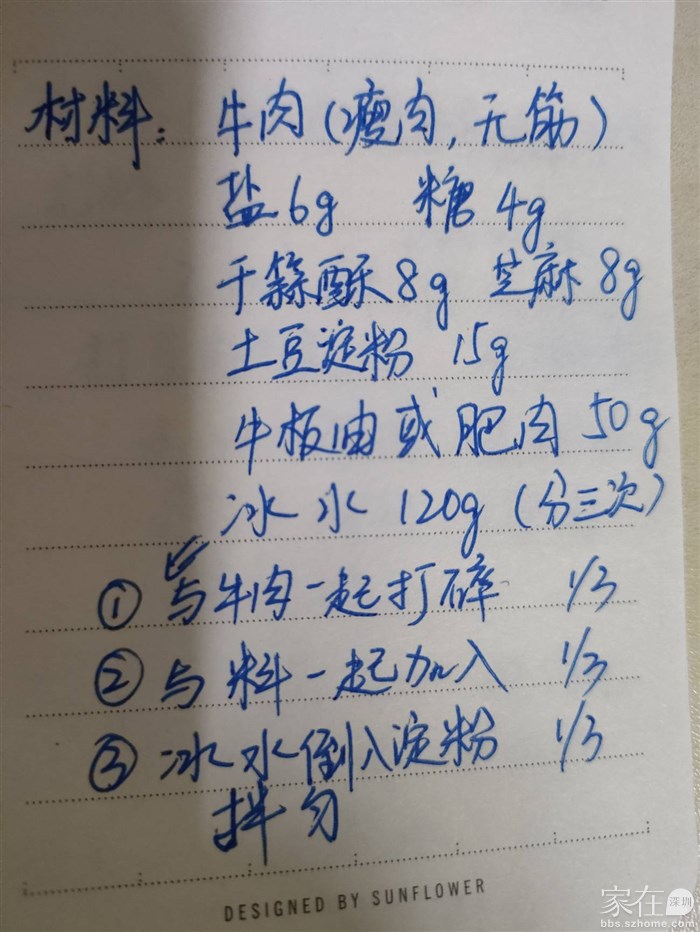 材料: 牛肉(瘦肉,无筋)
盐6g 糖4g
干蒜酥8g 芝麻8g
土豆淀粉 15g
牛板油或肥肉50g
冰水120g(分三次)
① 与牛肉一起打碎 1/3
② 与料一起加入 1/3
③ 冰水倒入淀粉 1/3
拌匀
DESIGNED BY SUNFLOWER
家在深圳
bbs.szhome.com